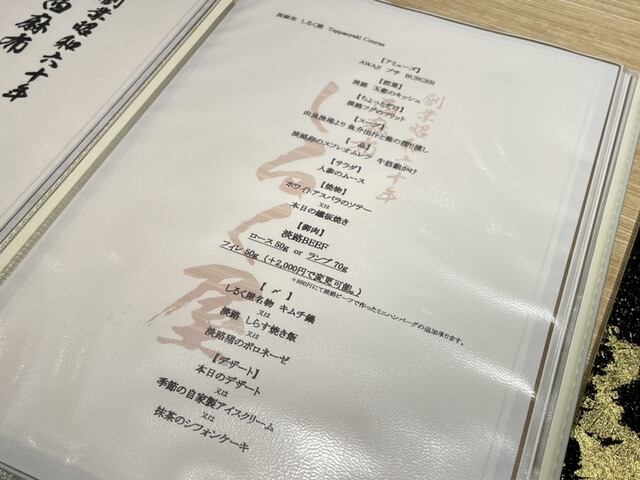 創業昭和六十年
西麻布
西麻布 しるく屋 Teppanyaki Course
【アミューズ】
AWAJI プチ BURGER
【前菜】
淡路 玉葱のキッシュ
【ちょっとだけ】
淡路フグのフリット
【スープ】
由良漁港より 魚介出汁と蕪の摺り流し
【一品】
淡路卵のスフレオムレツ 牛筋餡かけ
【サラダ】
人参のムース
【焼物】
ホワイトアスパラのソテー
又は
本日の鐵板焼き
【御肉】
淡路BEEF
ロース 50g or ランプ 70g
フィレ 50g（+2,000円で変更可能。）
+800円にて淡路ビーフで作ったミニハンバーグの追加承ります。
【〆】
しるく屋名物 キムチ鍋
又は
淡路 しらす焼き飯
又は
淡路猪のボロネーゼ
【デザート】
本日のデザート
又は
季節の自家製アイスクリーム
又は
抹茶のシフォンケーキ
創業昭和六十年
しるく屋